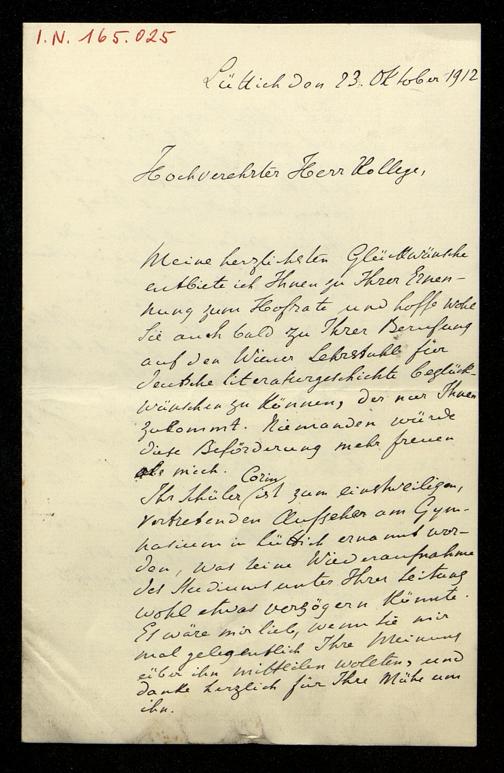 I.N. 165.025
Lüttich den 23. Oktober 1912
Hochverehrter Herr Kollege,
Meine herzlichsten Glückwünsche
entbiete ich Ihnen zu Ihrer Ernen-
nung zum Hofrate und hoffe wohl
Sie auch bald zu Ihrer Berufung
auf den Wiener Lehrstuhl für
deutsche Literaturgeschichte beglück-
wünschen zu können, der nur Ihnen
zukommt. Niemanden würde
diese Beförderung mehr freuen
als mich.
Ihr Schüler Corin ist zum einstweiligen,
vertretenden Aufseher am Gym-
nasium in Lüttich ernannt wor-
den, was seine Wiederaufnahme
des Studiums unter Ihrer Leitung
wohl etwas verzögern könnte.
Es wäre mir lieb, wenn Sie mir
mal gelegentlich Ihre Meinung
über ihn mitteilen wollten, und
danke herzlich für Ihre Mühe um
ihn.